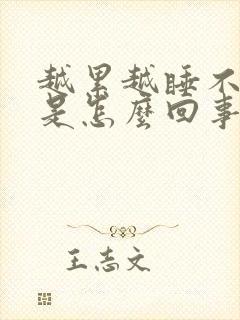 越累越睡不
是怎麼回事
王志文